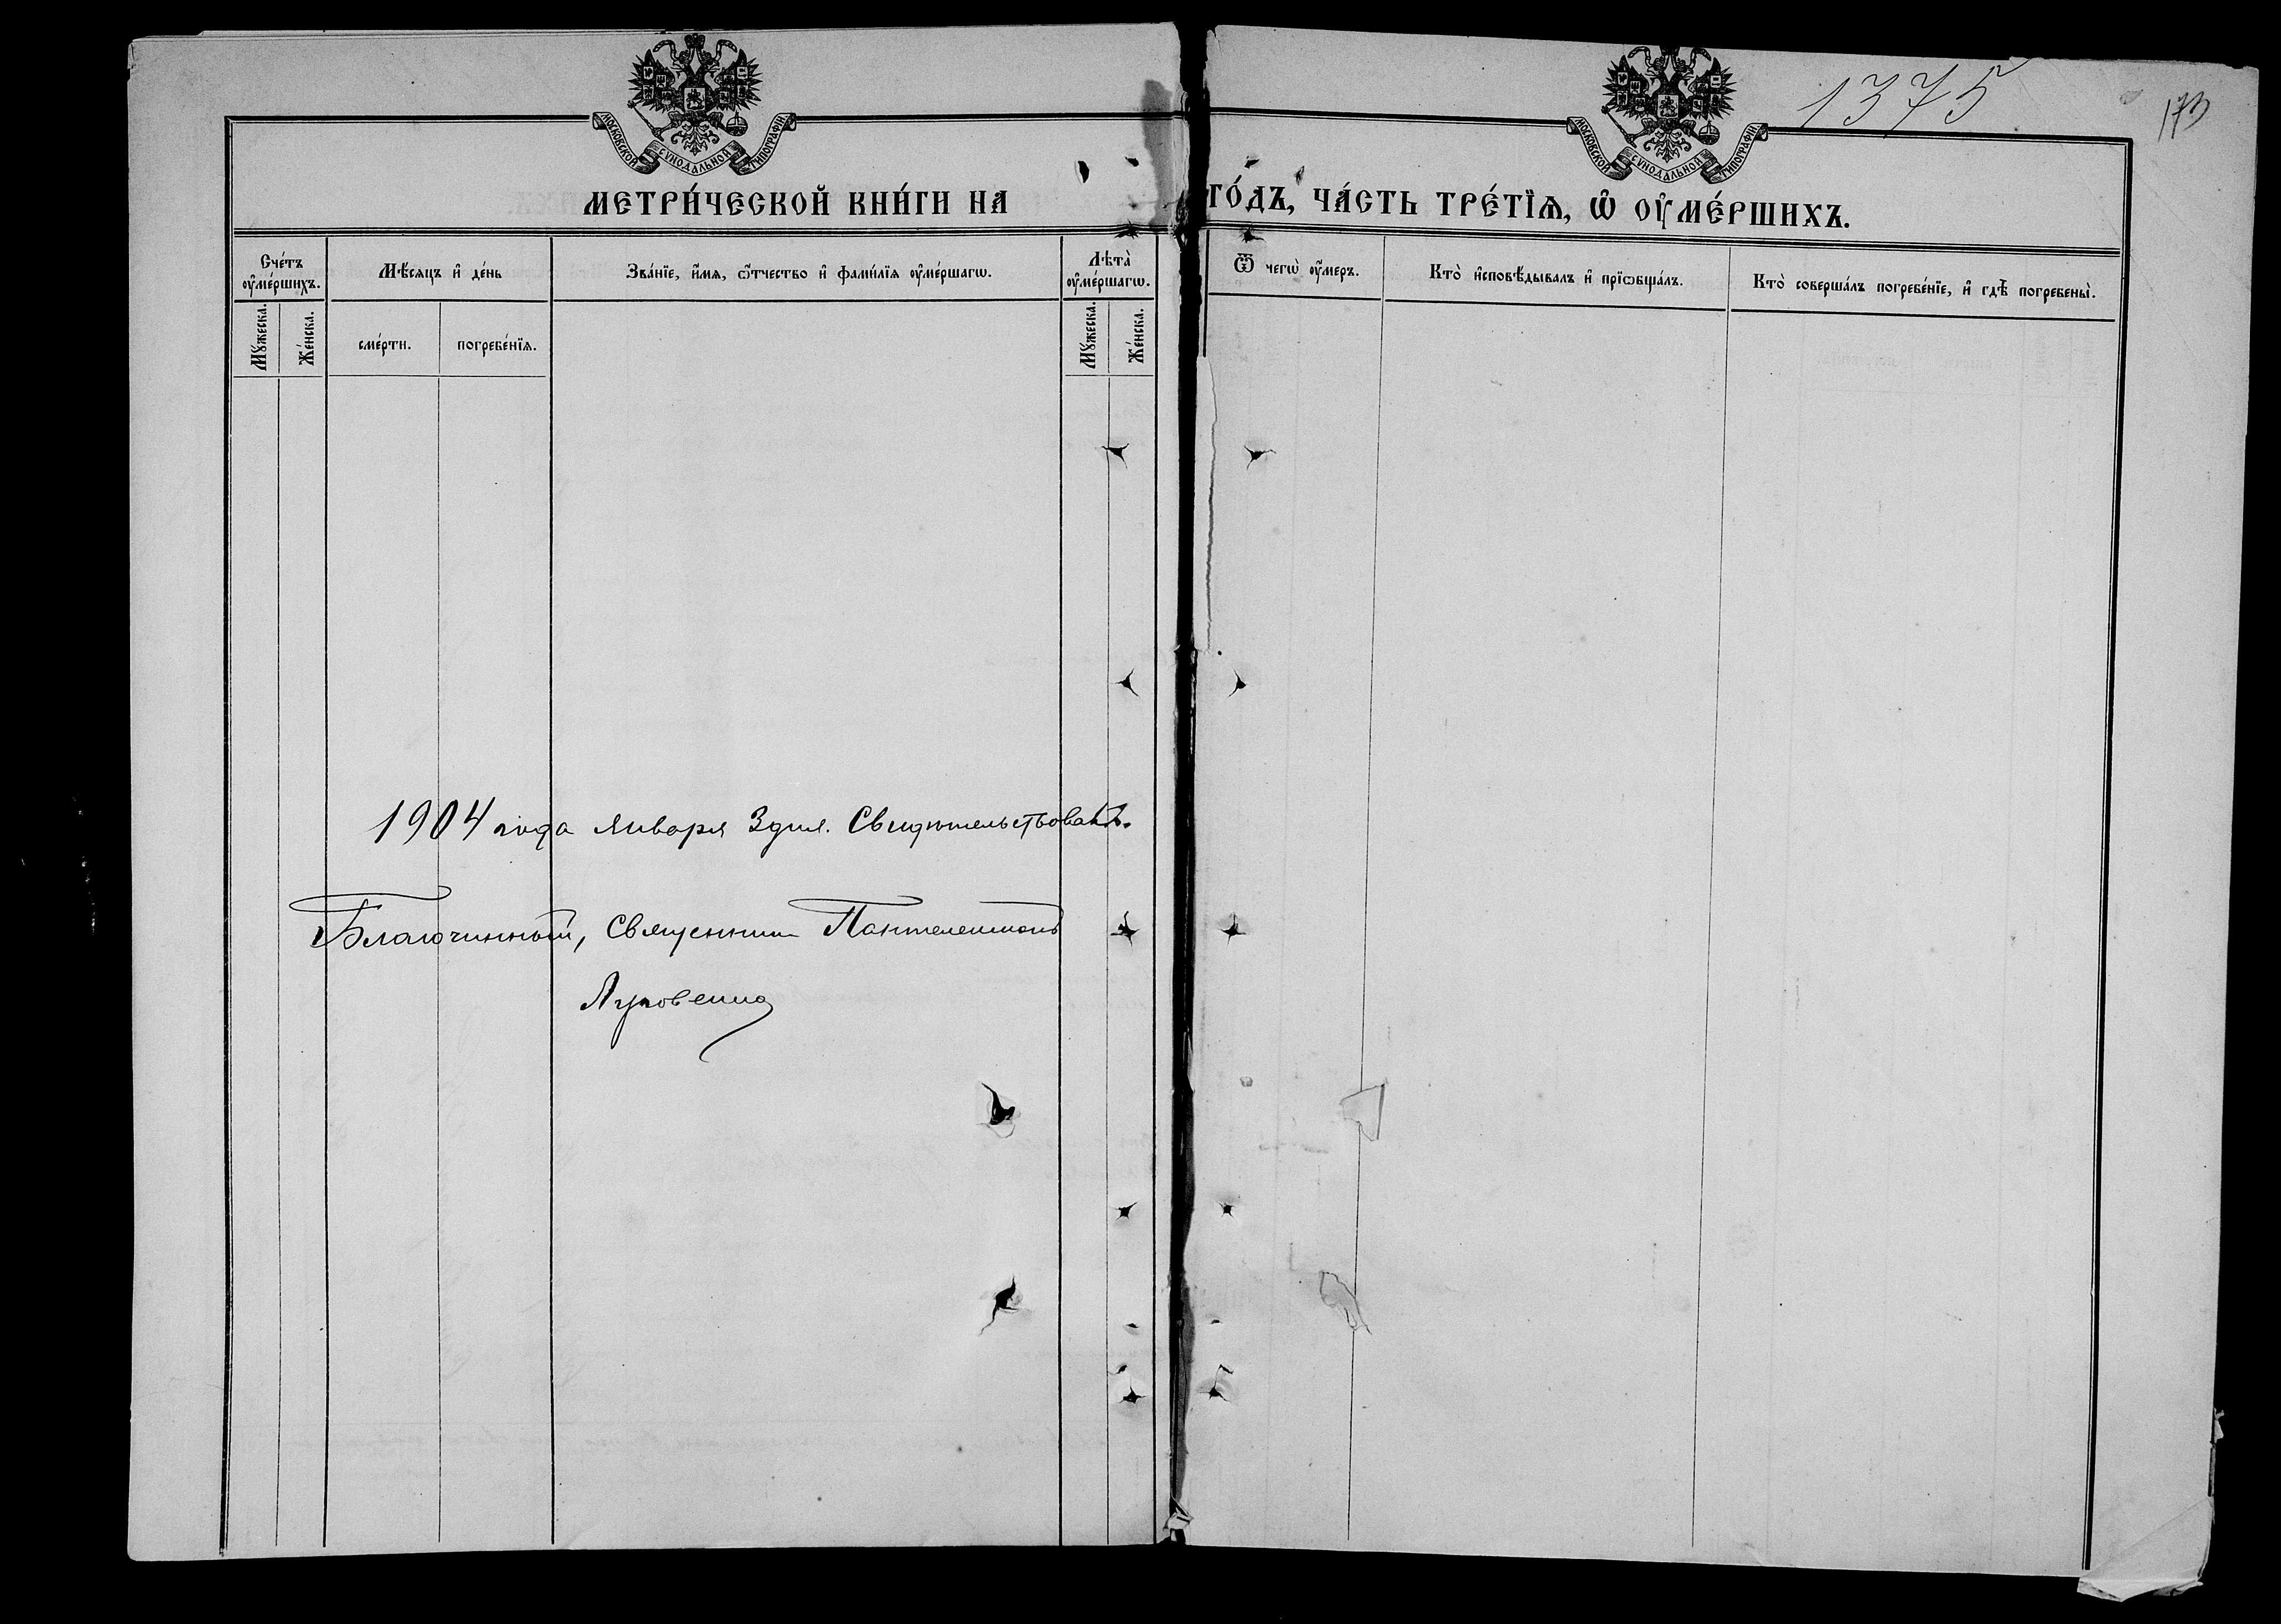 МОСКОВСКОЙ СѴНОДАЛЬНОЙ ТИПОГРАФІИ
МОСКОВСКОЙ СѴНОДАЛЬНОЙ ТИПОГРАФІИ
1375
173
МЕТРИ́ЧЕСКОЙ КНИ́ГИ НА
ГО́ДЪ, ЧА́СТЬ ТРЕ́ТЇѦ, Ѡ҆ ОУ҆МЕ́РШИХЪ.
Сче́тъ оу҆ме́ршихъ.
Мѣ́сяцъ и҆ де́нь
Зва́нїе, и҆́мѧ, ѻ҆́тчество и҆ фами́лїѧ оу҆ме́ршагѡ.
Лѣта̀ оу҆ме́ршагѡ.
Ѿ чегѡ̀ оу҆́меръ.
Кто̀ и҆сповѣ́дывалъ и҆ прїѡбща́лъ.
Кто̀ соверша́лъ погребе́нїе, и҆ гдѣ̀ погребены̀.
Мꙋ́жеска.
Же́нска.
сме́рти.
погребе́нїѧ.
Мꙋ́жеска.
Же́нска.
1904 года января 3 дня. Свидѣтельствовалъ.
Благочинный, Священникъ Пантелеимонъ